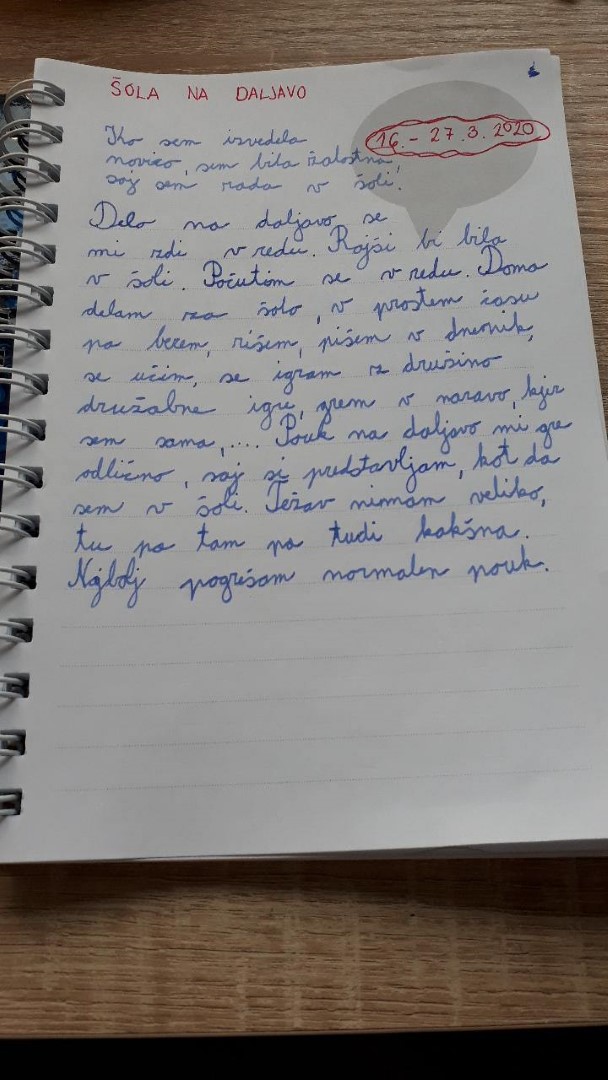 ŠOLA NA DALJAVO
16. - 27. 3. 2020
Ko sem izvedela
novico, sem bila žalostna,
saj sem rada v šoli.
Delo na daljavo se
mi zdi v redu. Rajši bi bila
v šoli. Počutim se v redu. Doma
delam za šolo, v prostem času
pa berem, rišem, pišem v dnevnik,
se učim, se igram z družino
družabne igre, grem v naravo, kjer
sem sama,.... Pouk na daljavo mi gre
odlično, saj si predstavljam, kot da
sem v šoli. Težav nimam veliko,
tu pa tam pa tudi kakšna.
Najbolj pogrešam normalen pouk.